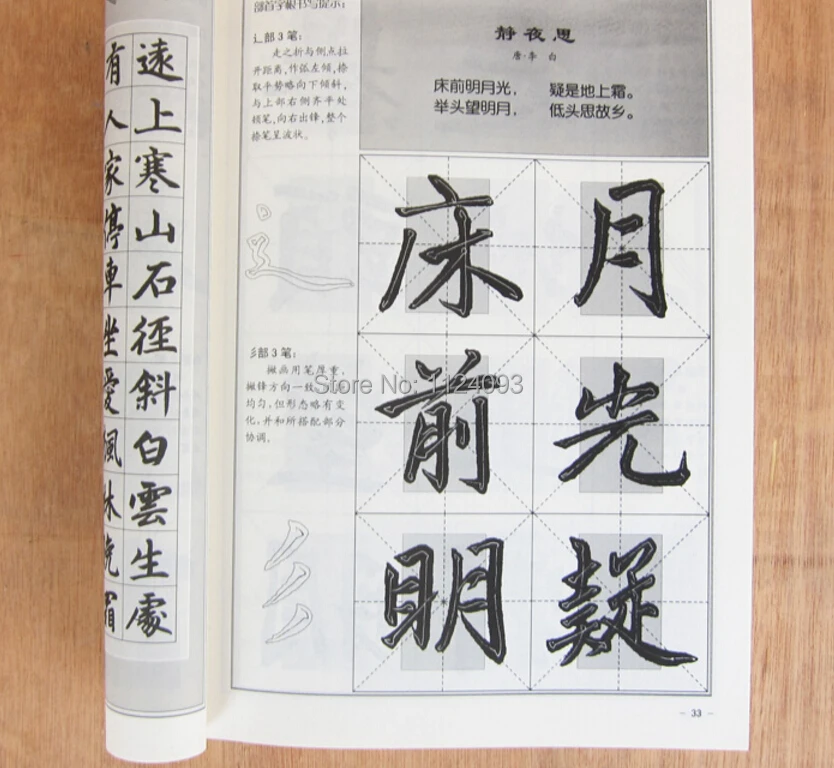 遠上寒山石徑斜白雲生處
有人家停車坐愛楓林晚霜
部首字根书写提示：
辶部 3 笔：
走之折与侧点拉
开距离，作弧左倾，捺
取平势略向下倾斜，
与上部右侧齐平处
顿笔，向右出锋，整个
捺笔呈波状。
彡部 3 笔：
撇画用笔厚重，
撇锋方向一致
均匀，但形态略有变
化，并和所搭配部分
协调。
静夜思
唐·李 白
床前明月光， 疑是地上霜。
举头望明月， 低头思故乡。
床前明
月光疑
Store No: 1124093
– 33 –